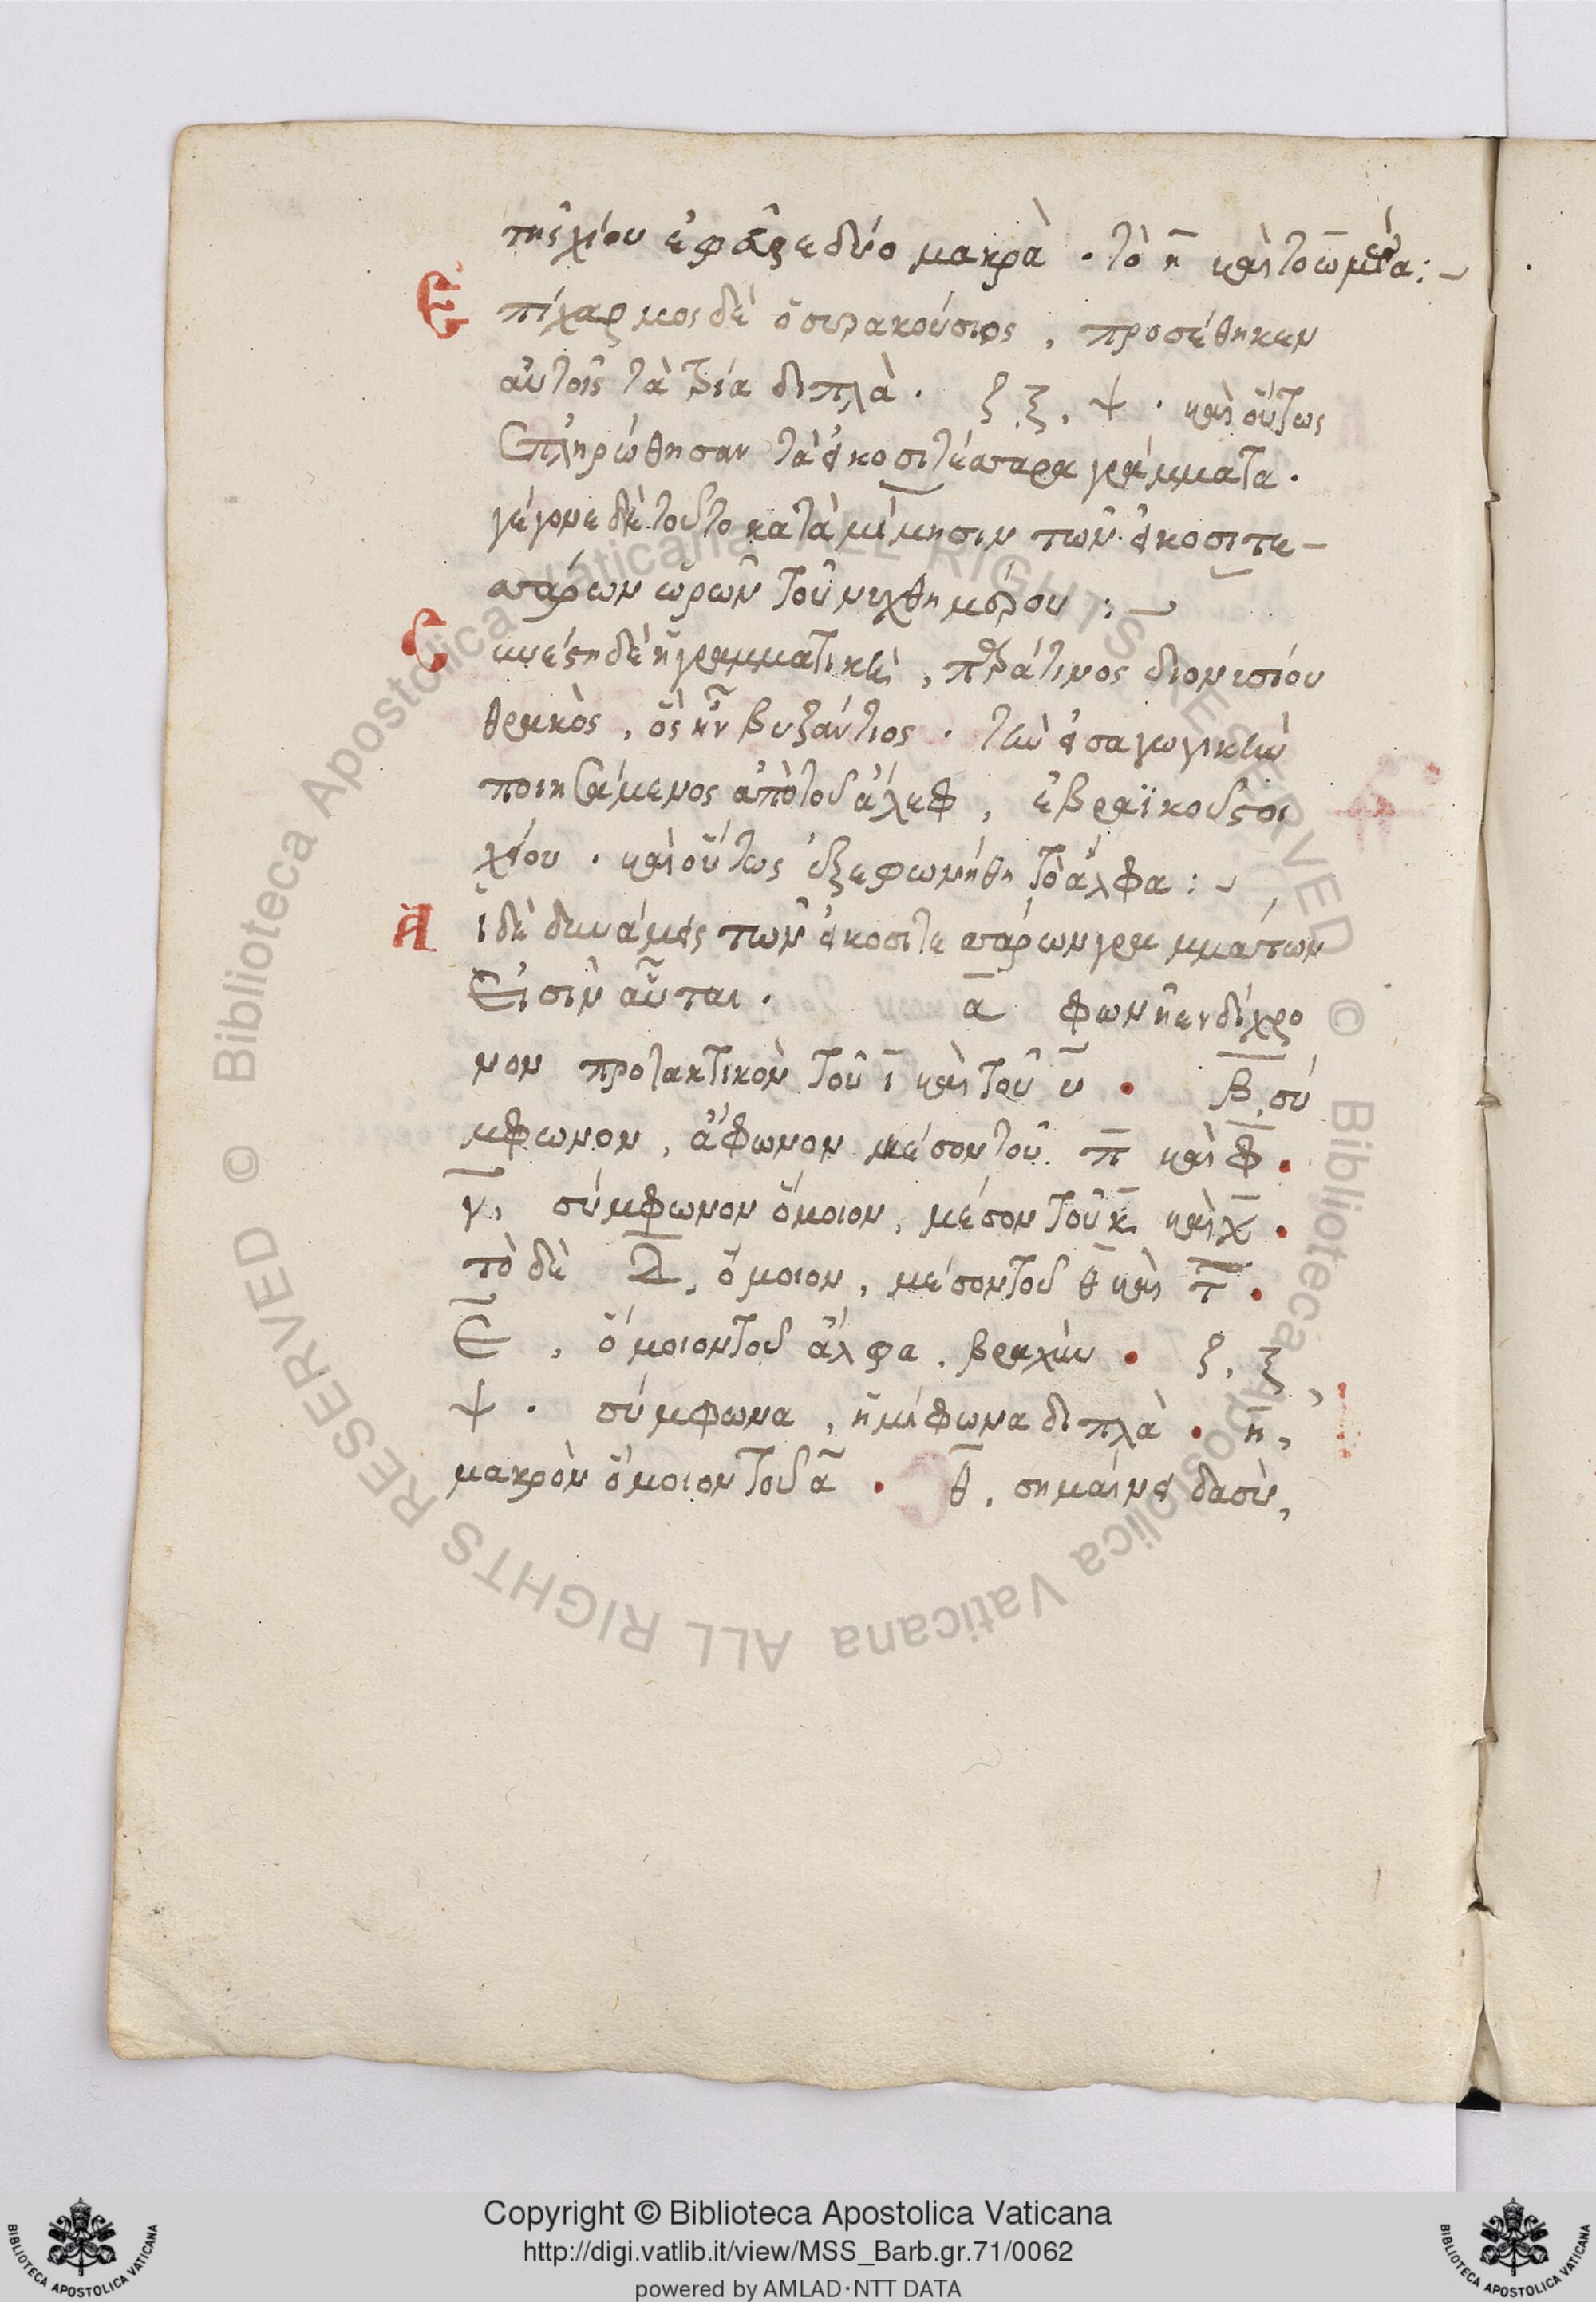 της χίου ἐφεῦρε δύο μακρὰ · τὸ η̄ καὶ τὸ ω̄ μέγα :~
Ε πίχαρμος δὲ ὁ συρακούσιος , προσέθηκεν
αὐτοῖς τὰ τρία διπλὰ . ζ , ξ , ψ · καὶ οὕτως
ἐπληρώθησαν τὰ εἰκοσιτέσσαρα γράμματα .
γέγονε δὲ τοῦτο κατὰ μίμησιν τῶν εἰκοσιτε-
σσάρων ὡρῶν τοῦ νυχθημέρου :~
С υνέστη δὲ ἡ γραμματικὴ , παρά τινος διονυσίου
θρακὸς , ὃς ἦν βυζάντιος · τὴν εἰσαγωγικὴν
ποιησάμενος ἀπὸ τοῦ ἄλεφ , ἑβραϊκοῦ στοι
χείου · καὶ οὕτως ἐξεφωνήθη τὸ ἄλφα :~
Α ἱ δὲ δυνάμεις τῶν εἰκοσιτεσσάρων γραμμάτων
Εἰσὶν αὗται . ᾱ φωνῆεν δίχρο
νον προτακτικὸν τοῦ ῑ καὶ τοῦ ῡ · β̄ , σύ
μφωνον , ἄφωνον μέσον τοῦ π̄ καὶ φ̄ ·
γ̄ , σύμφωνον ὅμοιον , μέσον τοῦ κ̄ καὶ χ̄ ·
τὸ δὲ Δ̄ , ὅμοιον , μέσον τοῦ θ̄ καὶ τ̄ ·
ε̄ , ὅμοιον τοῦ ἄλφα , βραχὺν · ζ , ξ ,
ψ · σύμφωνα , ἡμίφωνα διπλὰ · η̄ ,
μακρὸν ὅμοιον τοῦ ᾱ · θ̄ , σημαίνει δασὺ ,
Copyright © Biblioteca Apostolica Vaticana
http://digi.vatlib.it/view/MSS_Barb.gr.71/0062
powered by AMLAD·NTT DATA
© Biblioteca Apostolica Vaticana ALL RIGHTS RESERVED © Biblioteca Apostolica Vaticana ALL RIGHTS RESERVED
BIBLIOTECA APOSTOLICA VATICANA
BIBLIOTECA APOSTOLICA VATICANA